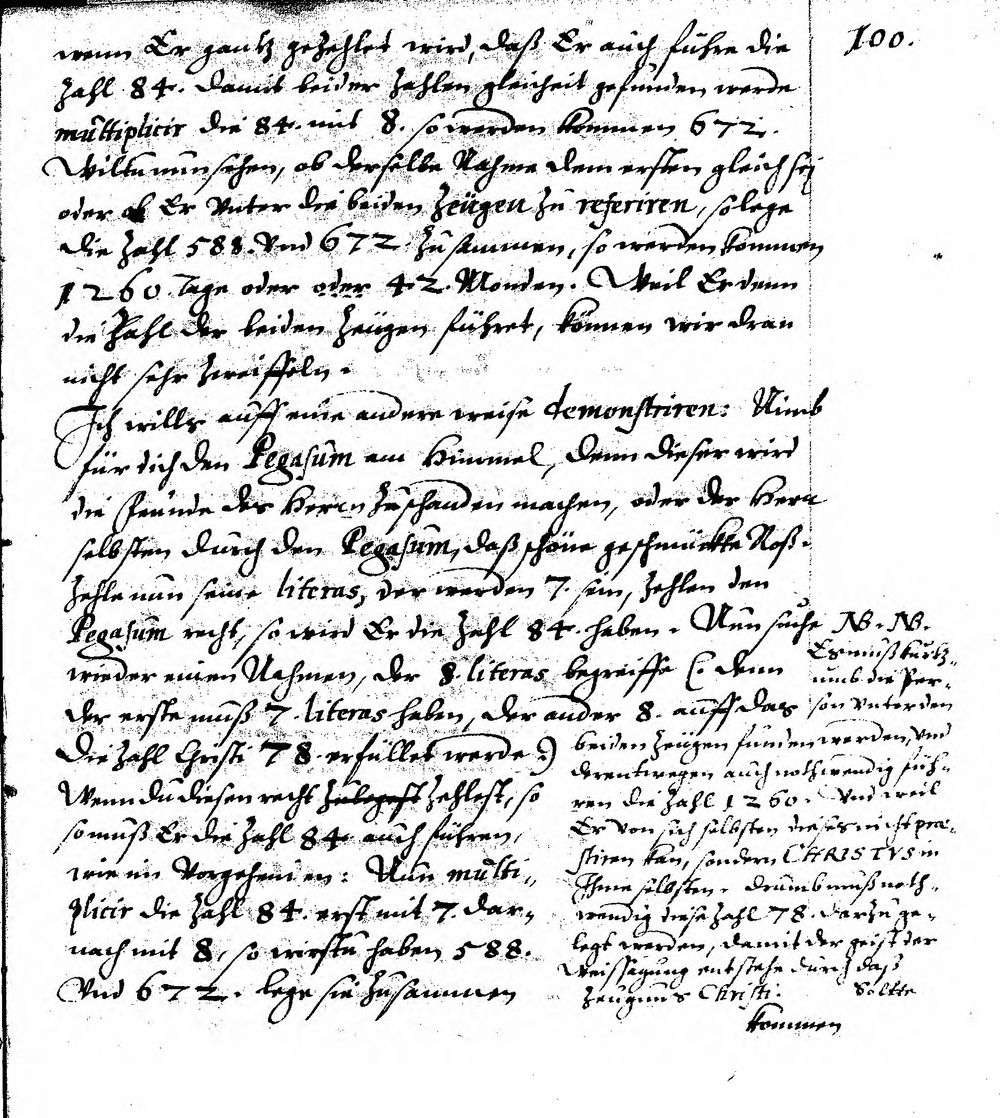 100.
wenn Er gantz gezehlet wird, daß Er auch führe die
Zahl 84. damit beider Zahlen gleicheit gefunden werde
multiplicir die 84. mit 8. so werden kommen 672.
Wiltu nun sehen, ob derselbe Nahme dem ersten gleich sej
oder ob Er unter die beiden Zeügen zu referiren, so lege
die Zahl 588. Vnd 672 zusammen, so werden kommen
1260. Tage oder oder 42. Monden. Weil Er denn
die Zahl der beiden Zeügen führet, können wir dran
nicht sehr zweiffeln.
Ich wills auff eine andere weise demonstriren: Nimb
für dich den Pegasum am Himmel, denn dieser wird
die feinde des Herrn zuschanden machen, oder der Herr
selbsten durch den Pegasum, daß schöne geschmückte Roß.
Zehle nun seine literas, der werden 7. sein, Zehlen den
Pegasum recht, so wird Er die Zahl 84. haben. Nun suche
wieder einen Nahmen, der 8. literas begreiffe (: denn
der erste muß 7. literas haben, der ander 8. auff das
die Zahl Christi 78. erfüllet werde :)
Wenn du diesen recht zulegest zehlest, so
so muß Er die Zahl 84 auch führen,
wie im Vorgehenden: Nun multi-
plicir die Zahl 84. erst mit 7. dar-
nach mit 8, so wirstu haben 588.
Vnd 672. lege sie zusammen
NB. NB.
Er muß kurtz-
umb die Per-
son unter den
beiden Zeügen funden werden, Vnd
derentwegen auch nothwendig füh-
ren die Zahl 1260. Vnd weil
Er von sich selbsten dieses nicht præ-
stiren kan, sondern CHRISTVS in
Ihme selbsten. drumb muß noth-
wendig diese Zahl 78. darzu ge-
legt werden, damit der geist der
Weissagung entstehe durch daß
Zeugnus Christi. Solte
kommen